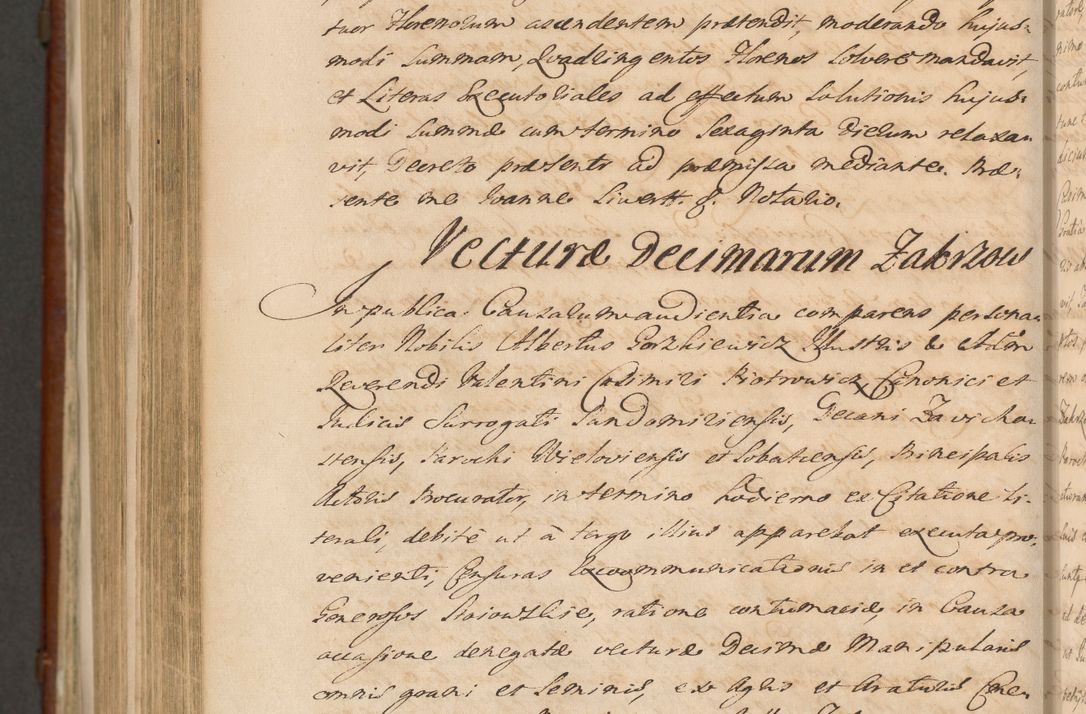 tuor Florenorum ascendentem prætendit, moderando hujus-
modi Summam, Quadlingentos Florenos Solvere mandavit,
et Literas Executoriales ad effectum Solutionis hujus-
modi Summæ cum termino Sexaginta dierum relaxa-
vit, Decreto præsenti ad præmissa mediante. Præ-
sente me Joanne Sivert. S. Notario.
Vecturæ Decimarum Zabrzow
In publica Causarum audientia comparens persona-
liter Nobilis Albertus Gorzkiewicz Illustris & Adm
Reverendi Valentini Casimiri Piotrowicz Canonici et
Judicis Surrogati Sandomiriensis, Decani Zavicho-
stensis, Parochi Wieloviensis et Sobothensis, Principalis
Actoris Procurator, in termino hodierno ex Citatione li-
terali, debitè ut à tergo illius apparebat executa pro-
venienti, Censuras Excommunicationis in et contra
Generosos Straiowskie, ratione contumaciæ, in Causa
occasione denegatæ vecturæ Decimæ Manipularis
omnis grani et Seminis, ex Agris et Araturis